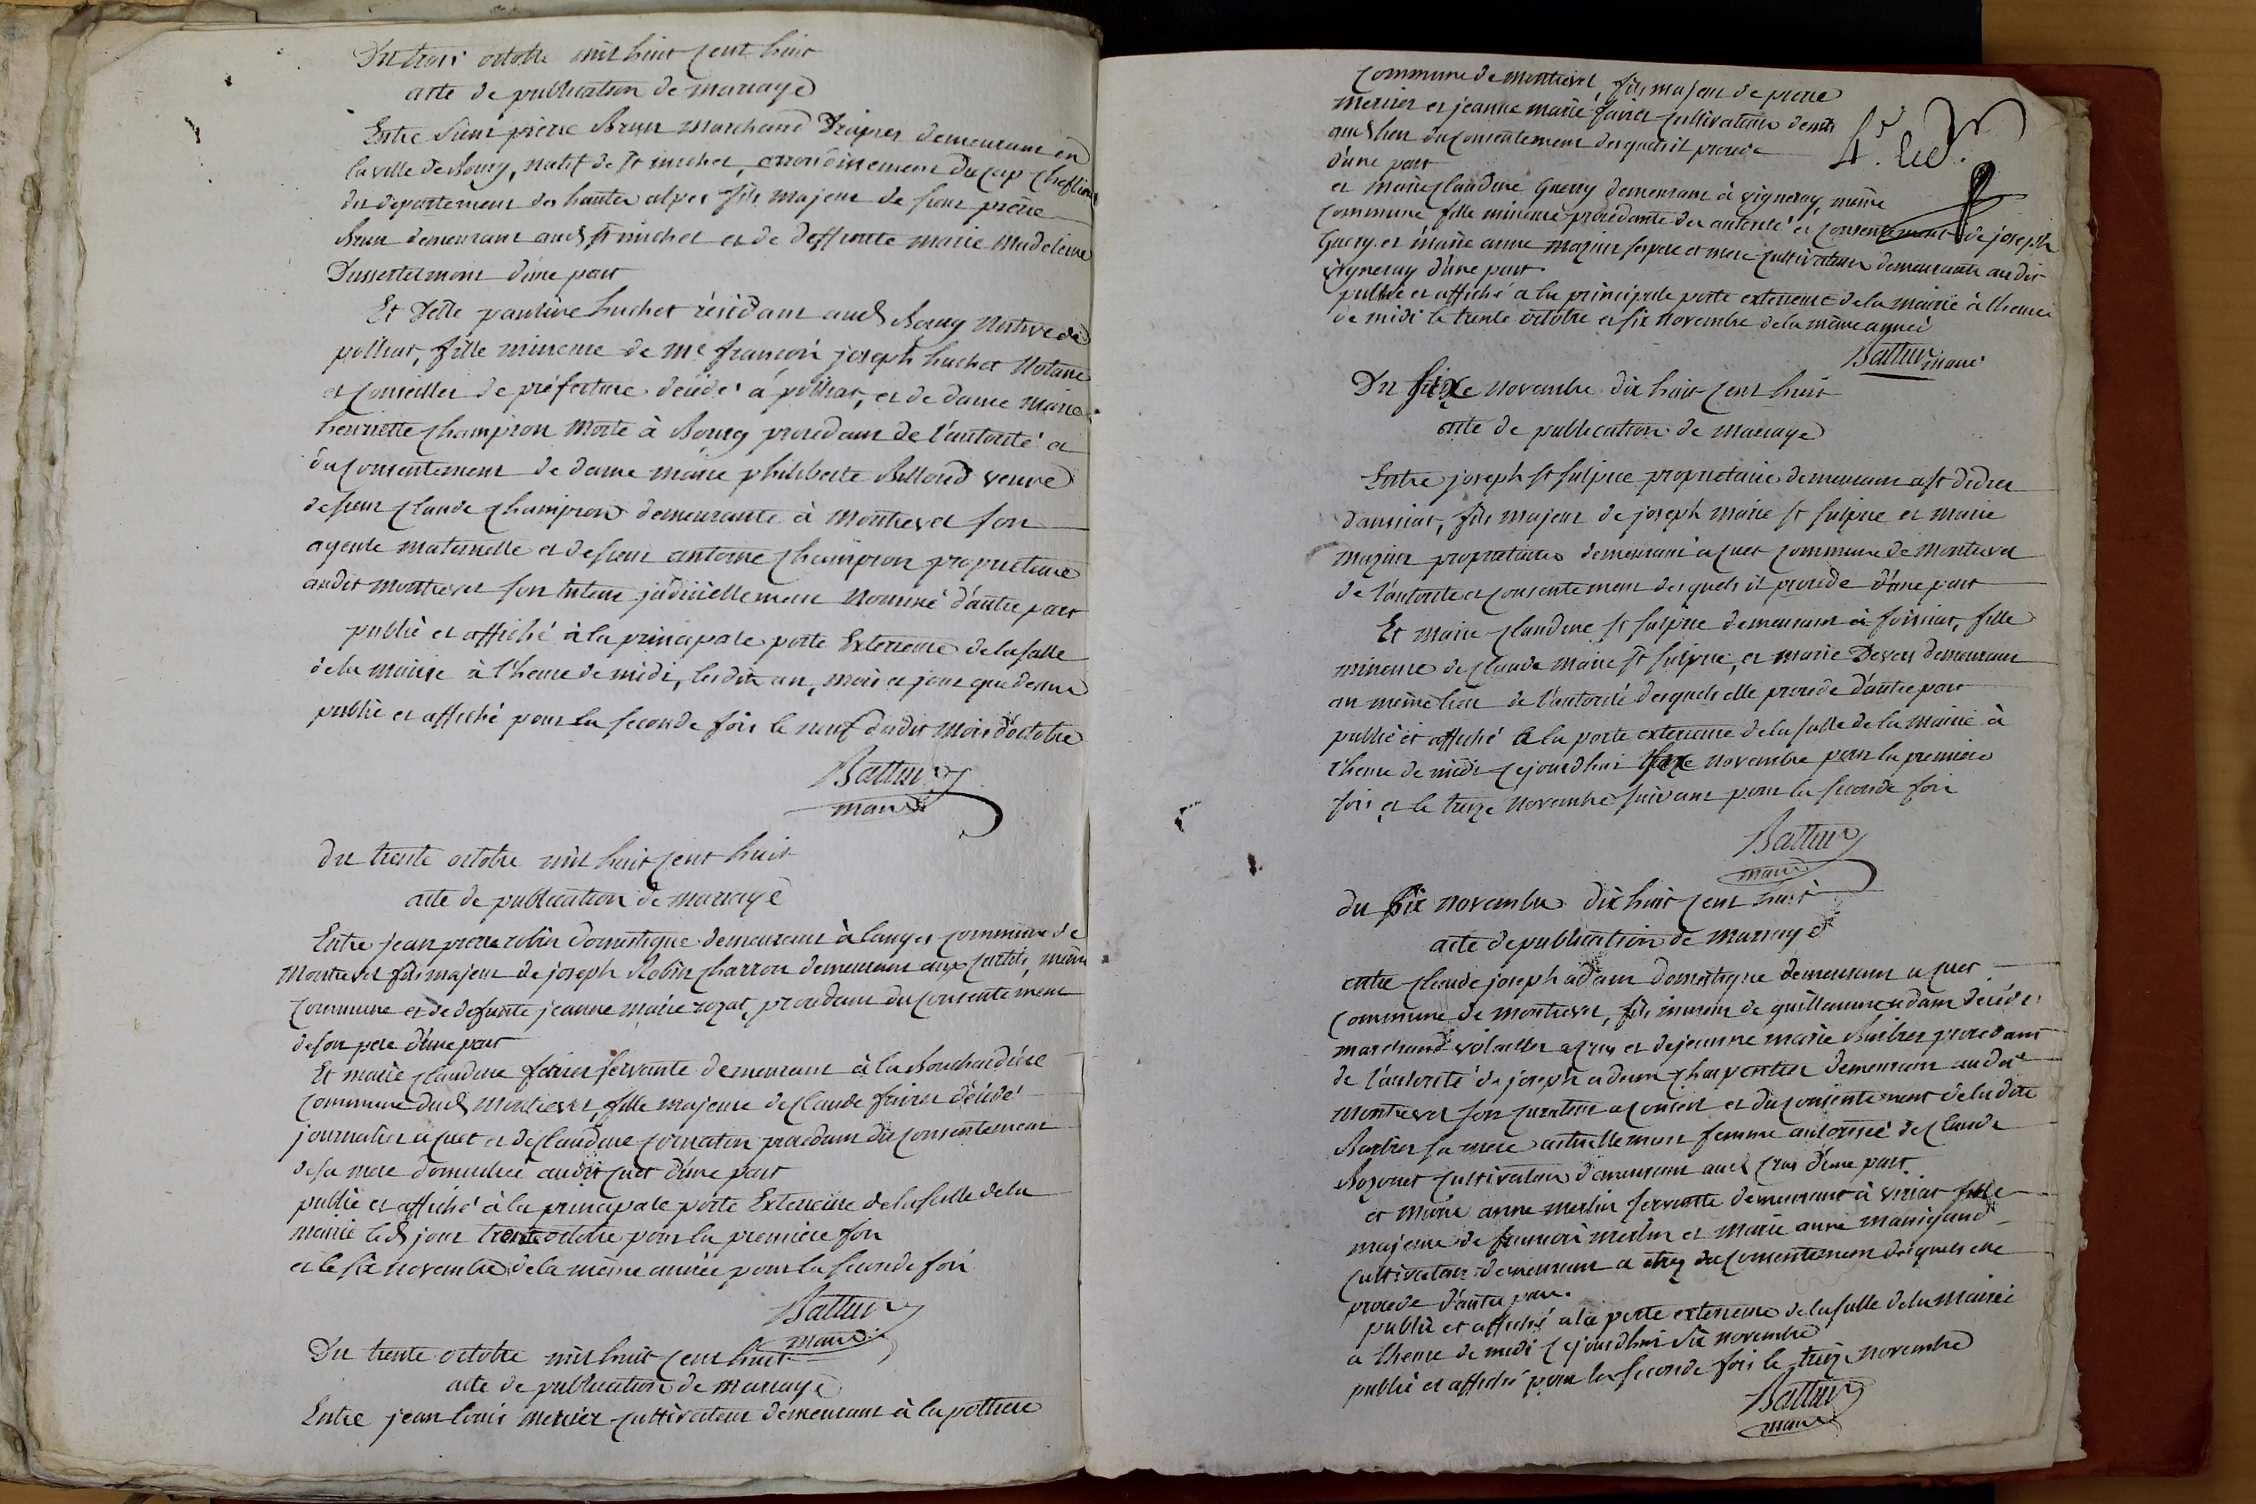 Du trois octobre mil huit cent huit
acte de publication de mariage
Entre sieur pierre Brun marchand Drapier demeurant en
la ville de Bourg, natif de St michel, arrondissement du Cap Cheflieu
du departement des hautes alpes fils majeur de sieur pierre
Brun demeurant aud St michel et de deffunte marie Madeleine
d'une part
Et Delle pauline huchet résidant aud Bourg Native de
polliat, fille mineure de Me françois joseph huchet Notaire
et Conseiller de préfecture décédé à polliat, et de dame Marie
henriette Champion Morte à Bourg procedant de l'autorité et
du Consentement de dame marie philiberte Billoud veuve
de sieur Claude Champion demeurante à Montrevel son
ayeule maternelle et de sieur antoine Champion proprietaire
audit montrevel son tuteur judiciellement Nommé d'autre part
publié et affiché à la principale porte Exterieure de la salle
de la Mairie à l'heure de midi, les dits an, mois et jour que dessus
publié et affiché pour la seconde fois le neuf dudit Mois d'octobre
Battur
maire
Du trente octobre mil huit cent huit
acte de publication de mariage
Entre jean pierre robin Domestique demeurant à Langes commune de
Montrevel fils majeur de joseph Robin Charron demeurant aux Curtils, même
Commune et de defunte jeanne marie rozat, procedant du Consentement
de son pere d'une part
Et marie Claudine favier servante demeurant à la Bouchardiere
Commune dud Montrevel, fille majeure de Claude favier décédé
journalier a Cuet et de Claudine Cornaton procedant du consentement
de sa mere domiciliée audit Cuet d'une part
publié et affiché à la principale porte Exterieure de la salle de la
mairie led jour trente octobre pour la premiere fois
et le six novembre de la même année pour la seconde fois
Battur
maire
Du trente octobre mil huit cent huit
acte de publication de mariage
Entre jean Louis mercier Cultivateur demeurant à la pottiere
Commune de montrevel, fils majeur de pierre
mercier et jeanne marie favier Cultivateurs demts
aud lieu du consentement desquels il procede
d'une part
et marie Claudine Guerry demeurant à vigneray, même
Commune fille mineure procedante de autorité et consentement de joseph
Guerry et marie anne mazuir ses pere et mere cultivateurs demeurants audit
vigneray d'une part
publié et affiché a la principale porte exterieure de la mairie à l'heure
de midi le trente octobre et six novembre de la même année
Battur maire
Du six novembre dix huit cent huit
acte de publication de mariage
Entre joseph St sulpice proprietaire demeurant a St didier
d'aussiat, fils majeur de joseph marie St sulpice et marie
mazuir proprietaires demeurant a Cuet Commune de Montrevel
de l'autorité et consentement desquels il procede d'une part
Et Marie Claudine St sulpice demeurant à foissiat, fille
mineure de Claude marie St sulpice, et marie Devers demeurant
au même lieu de l'autorité desquels elle procede d'autre part
publié et affiché a la porte exterieure de la salle de la Mairie à
l'heure de midi cejourdhui six novembre pour la premiere
fois et le treize novembre suivant pour la seconde fois
Battur
maire
du six novembre dix huit cent huit
acte de publication de mariage
entre Claude joseph adam domestique demeurant a Cuet
Commune de montrevel, fils mineur de guillaume adam décédé
marchand volailler a Cras et de jeanne marie Barbier procedant
de l'autorité de joseph adam Charpentier demeurant audit
Montrevel son curateur a conseil et du consentement de la dite
Barbier sa mere actuellement femme autorisée de Claude
Bozonet cultivateur demeurant aud Cras d'une part
et marie anne merlin servante demeurant à viriat fille
majeure de francois merlin et marie anne manigand
cultivateurs demeurant a etrez du consentement desquels elle
procede d'autre part
publié et affiché a la porte exterieure de la salle de la Mairie
a l'heure de midi cejourdhui six novembre
publié et affiché pour la seconde fois le treize novembre
Battur
maire